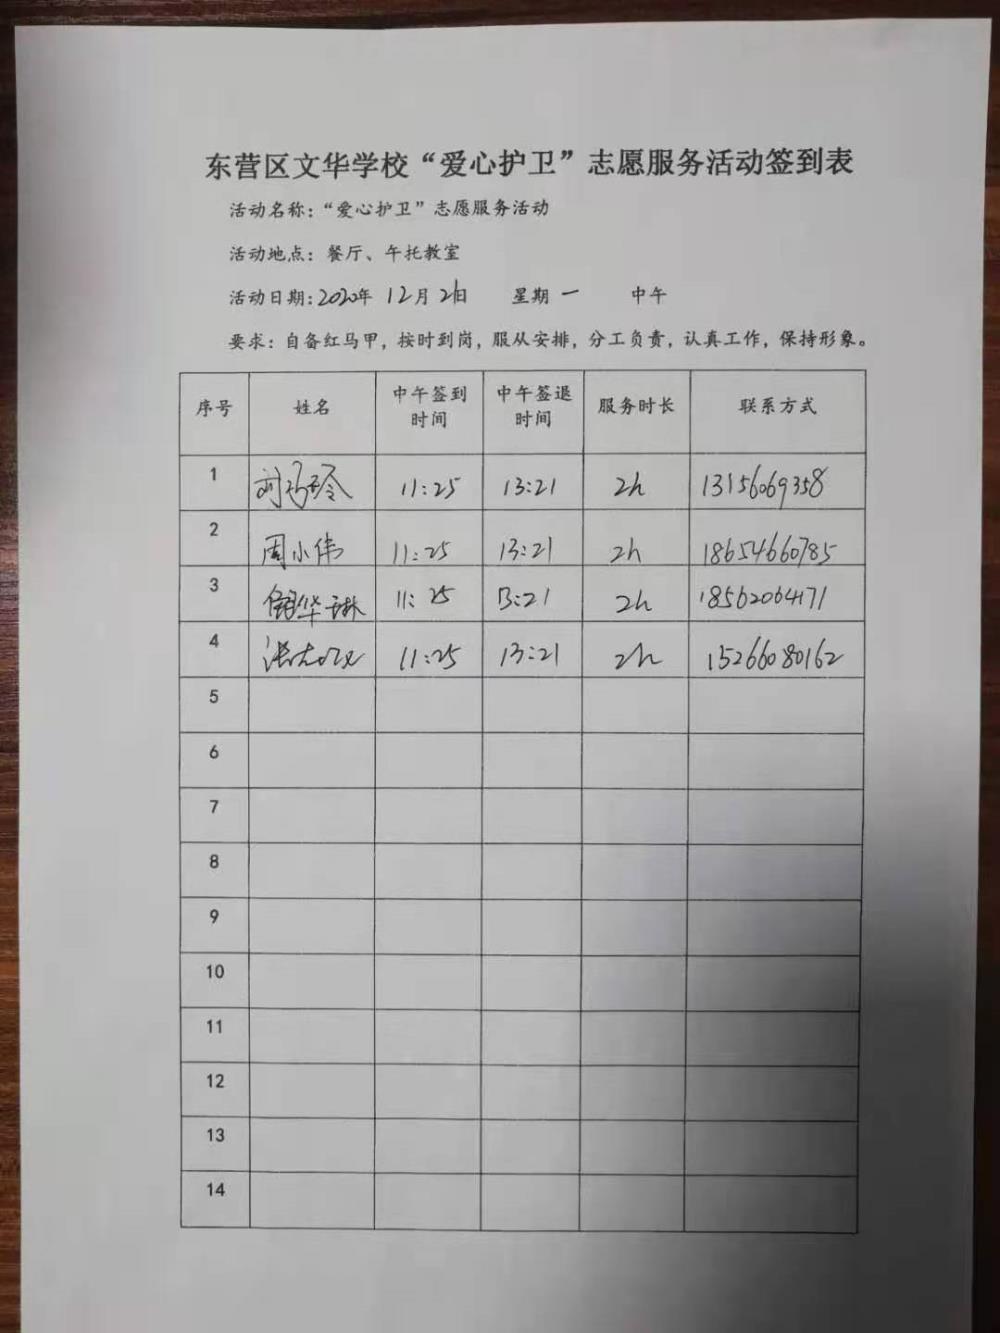 东营区文华学校“爱心护卫”志愿服务活动签到表
活动名称：“爱心护卫”志愿服务活动
活动地点：餐厅、午托教室
活动日期：2020年 12月 21日 星期一 中午
要求：自备红马甲，按时到岗，服从安排，分工负责，认真工作，保持形象。
序号 姓名 中午签到时间 中午签退时间 服务时长 联系方式
1 11:25 13:21 2h 13156069358
2 周小伟 11:25 13:21 2h 18654660785
3 11:25 13:21 2h 18562064171
4 11:25 13:21 2h 15266080162
5
6
7
8
9
10
11
12
13
14